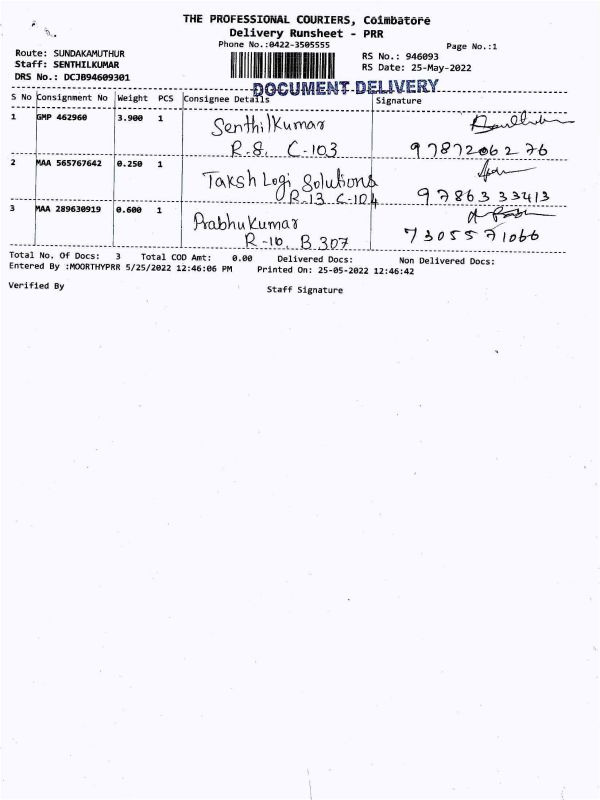 THE PROFESSIONAL COURIERS, Coimbatore
Delivery Runsheet - PRR
Phone No.:0422-3505555
Page No.:1
Route: SUNDAKAMUTHUR
RS No.: 946093
Staff: SENTHILKUMAR
RS Date: 25-May-2022
DRS No.: DCJB94609301
DOCUMENT DELIVERY
S No Consignment No Weight PCS Consignee Details Signature
1 GMP 462960 3.900 1 SenthilKumar
R-8, C-103 9787206276
2 MAA 565767642 0.250 1 Taksh Logi Solutions
R-13 C-104 9786333413
3 MAA 289630919 0.600 1 Prabhu Kumar
R-10, B 307 7305571066
Total No. Of Docs: 3 Total COD Amt: 0.00 Delivered Docs: Non Delivered Docs:
Entered By :MOORTHYPRR 5/25/2022 12:46:06 PM Printed On: 25-05-2022 12:46:42
Verified By Staff Signature